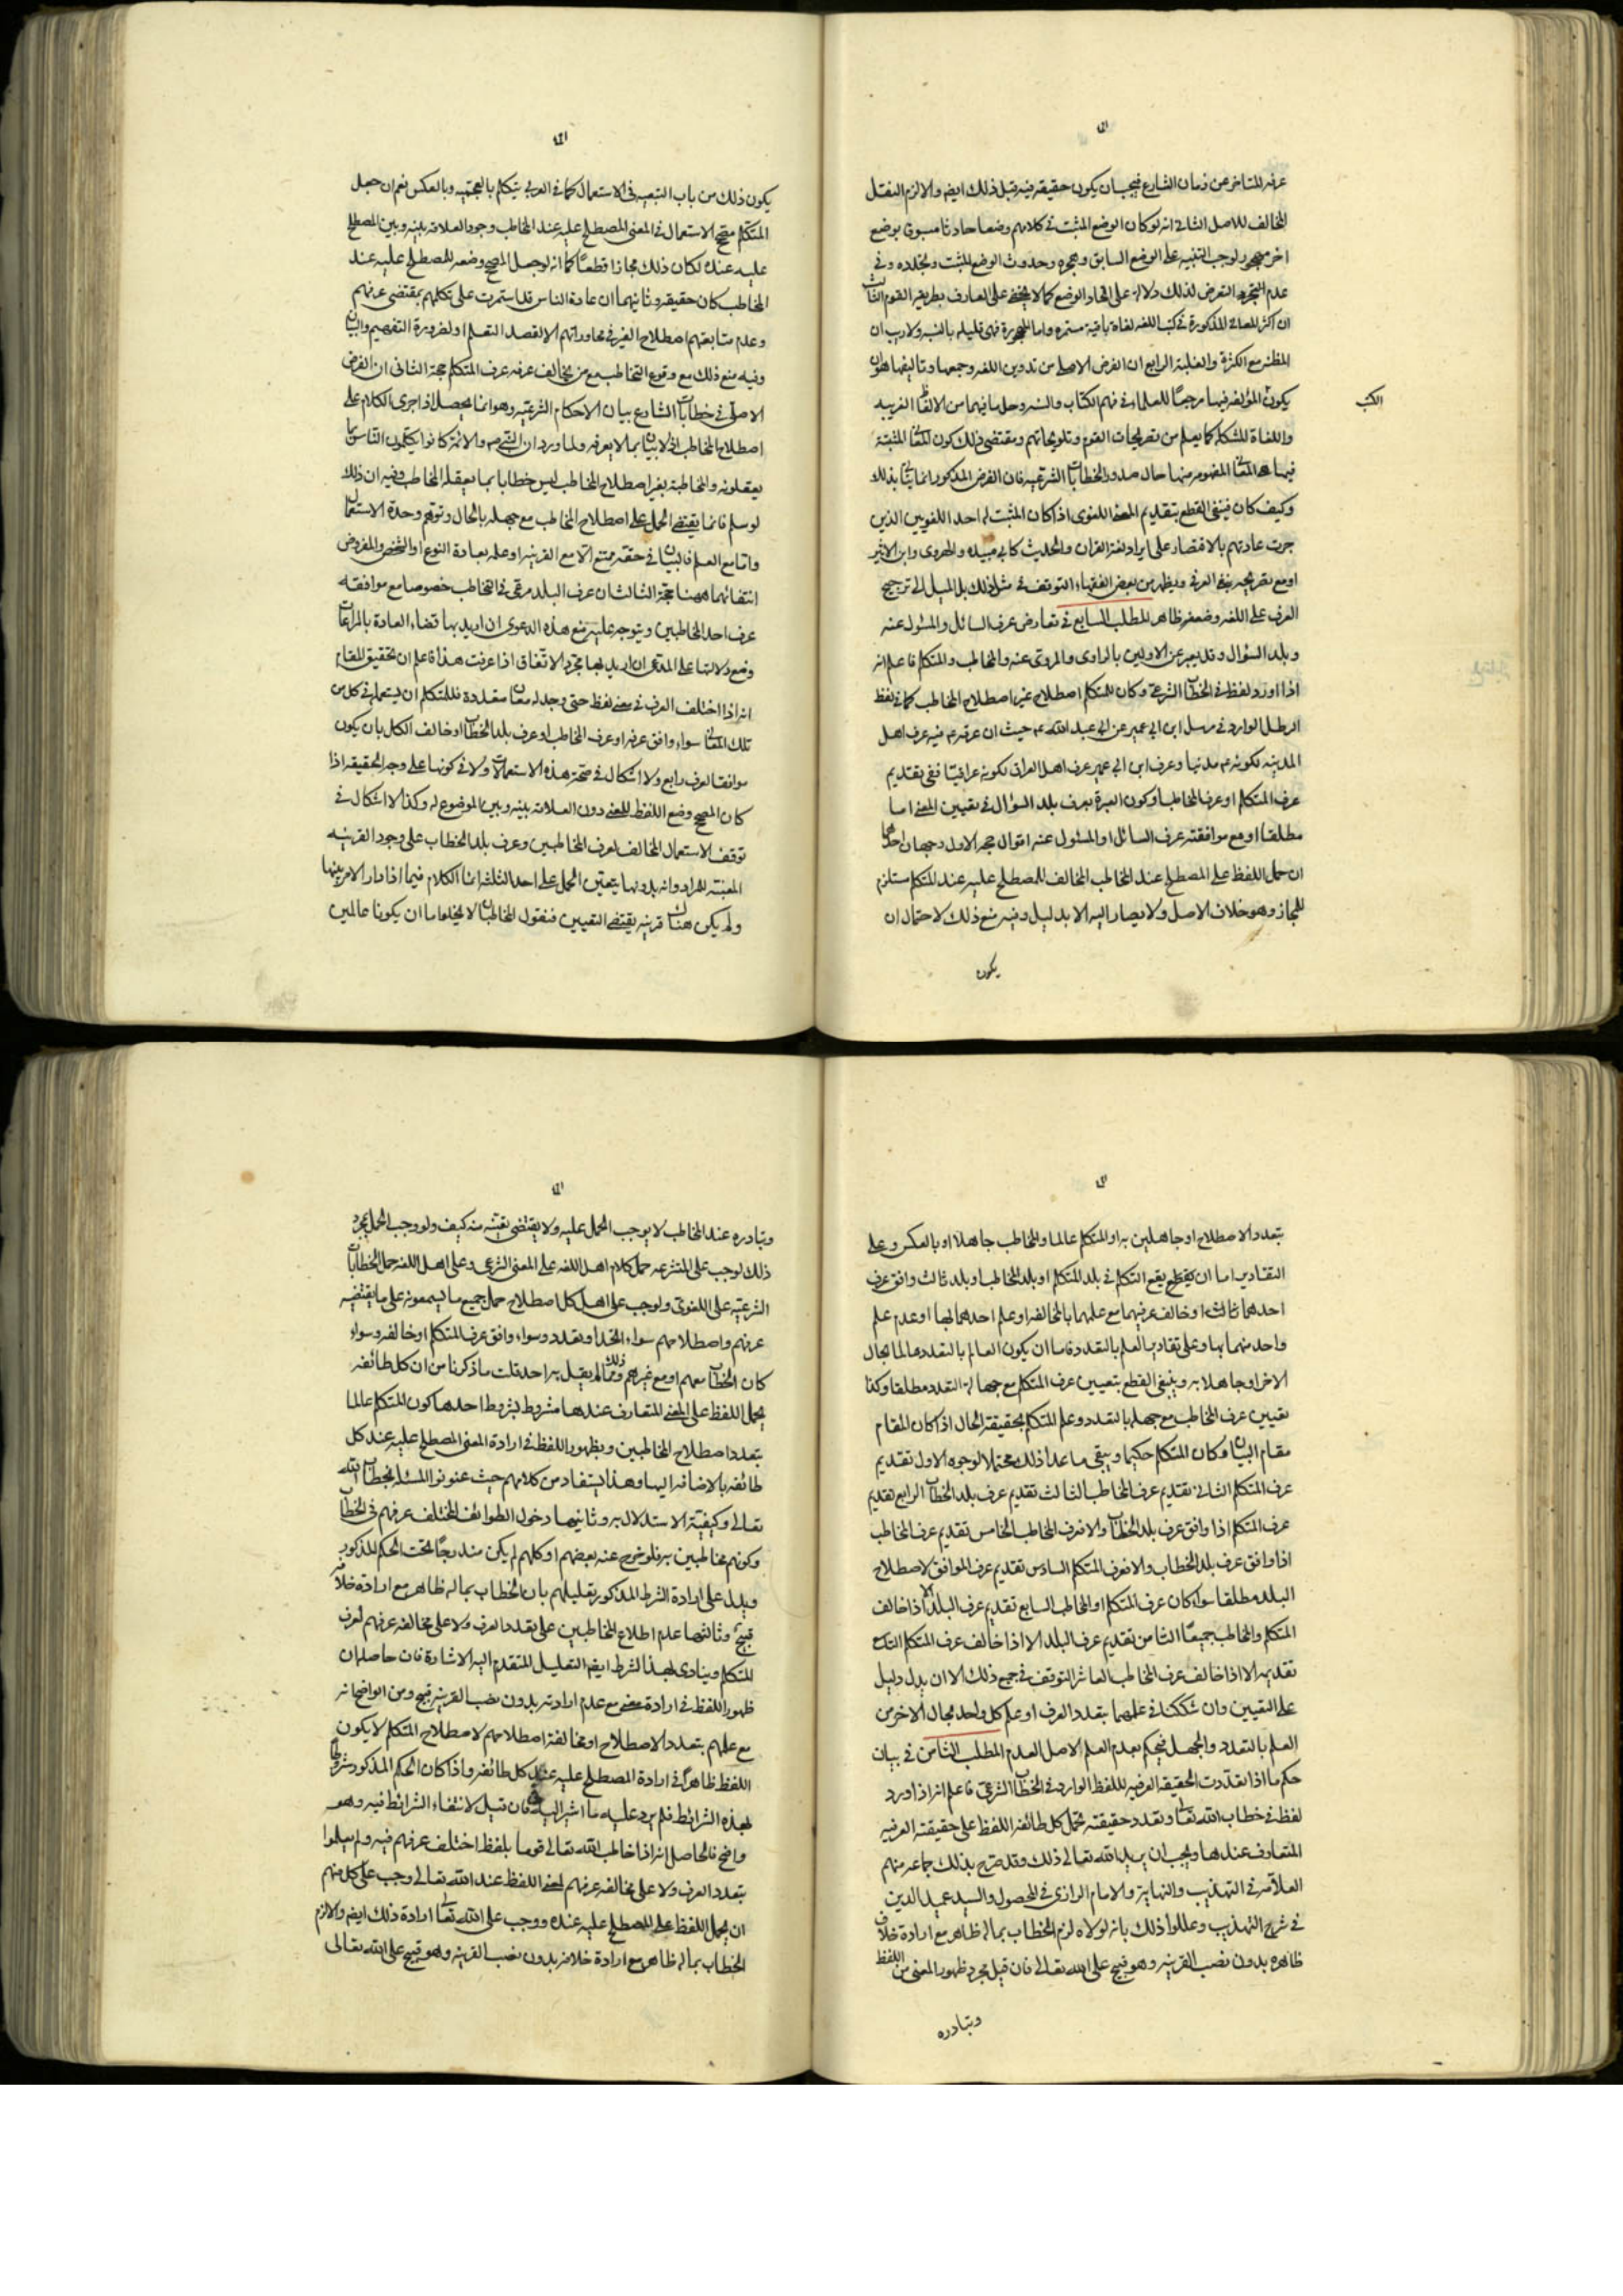 عرفه المتاخر عن زمان الشارع فيجب ان يكون حقيقة فيه قبل ذلك ايضا والا لزم النقل
المخالف للاصل الثاني انه لو كان الوضع المثبت في كلامهم وضعا حادثا مسبوق بوضع
اخر مهجور لوجب التنبيه على الوضع السابق وهجره وحدوث الوضع المثبت وتجدده وفي
عدم التعرض لذلك دلالة على اتحاد الوضع كما لا يخفى على العارف بطريقة القوم الثالث
ان اكثر المعاني المذكورة في كتب اللغه لغاة باقية مستمره واما المهجورة فهى قليله بالنسبه ولا ريب ان
المظنه مع الكثرة والغلبة الرابع ان الغرض الاصلي من تدوين اللغه وجمعها وتاليفها هو ان
يكون المؤلف فيها مرجعا للعلماء في فهم الكتاب والسنه وحل ما فيهما من الالفاظ الغريبه
الكتب
واللغاة المشكله كما يعلم من تصريحات القوم وتلويحاتهم ومقتضى ذلك كون المعاني المثبتة
فيها هى المعاني المفهومه منها حال صدور الخطابات الشرعيه فان الغرض المذكور انما يتاتى بذلك
وكيف كان فينبغي القطع بتقديم المعنى اللغوى اذا كان المثبت له احد اللغويين الذين
جرت عادتهم بالاقتصار على ايراد لغة القران والحديث كابي عبيده والهروى وابن الاثير
او مع تصريحه بنفى العرفي ويظهر من بعض الفقهاء التوقف في مثل ذلك بل الميل الى ترجيح
العرف على اللغه وضعفه ظاهر المطلب السابع في تعارض عرف السائل والمسئول عنه
وبلد السؤال وقد يعبر عن الاولين بالراوى والمروى عنه والمخاطب والمتكلم فاعلم انه
اذا اورد لفظ في الخطاب الشرعي وكان للمتكلم اصطلاح غير اصطلاح المخاطب كما في لفظ
الرطل الوارد في مرسل ابن ابي عمير عن ابي عبد الله ع حيث ان عرفه ع فيه عرف اهل
المدينه لكونه ع مدنيا وعرف ابن ابي عمير عرف اهل العراق لكونه عراقيا ففى تقديم
عرف المتكلم او عرف المخاطب او كون العبرة بعرف بلد السؤال في تعيين المعنى اما
مطلقا او مع موافقته عرف السائل او المسئول عنه اقوال حجة الاول وجهان احدهما
ان حمل اللفظ على المصطلح عند المخاطب المخالف للمصطلح عليه عند المتكلم مستلزم
للمجاز وهو خلاف الاصل ولا يصار اليه الا بدليل وفيه منع ذلك لاحتمال ان
يكون
يكون ذلك من باب التبعيه في الاستعمال كما في العربي يتكلم بالعجميه وبالعكس نعم ان جعل
المتكلم مصحح الاستعمال في المعنى المصطلح عليه عند المخاطب وجود العلاقه بينه وبين المصطلح
عليه عنده لكان ذلك مجازا قطعا كما انه لو جعل المصحح وضعه للمصطلح عليه عند
المخاطب كان حقيقه وثانيهما ان عادة الناس قد استمرت على تكلمهم بمقتضى عرفهم
وعدم متابعتهم اصطلاح الغير في محاوراتهم الا لقصد التعلم او لضرورة التفهيم والبيان
وفيه منع ذلك مع وقوع التخاطب مع من يخالف عرفه عرف المتكلم حجة الثاني ان الغرض
الاصلى في خطابات الشارع بيان الاحكام الشرعيه وهو انما يحصل اذا جرى الكلام على
اصطلاح المخاطب اذ لا بيان بما لا يعرفه ولما ورد ان النبي ص والائمة كانوا يكلمون الناس بما
يعقلونه والمخاطبة بغير اصطلاح المخاطب ليس خطابا بما يعقله المخاطب وفيه ان ذلك
لو سلم فانما يقتضى الحمل على اصطلاح المخاطب مع جهله بالحال وتوهم وحدة الاستعمال
واما مع العلم فالبيان في حقه ممتنع الا مع القرينه او علمه بعادة النوع او الشخص والمفروض
انتفائهما ههنا حجة الثالث ان عرف البلد مرعى في التخاطب خصوصا مع موافقته
عرف احد المخاطبين ويتوجه عليه منع هذه الدعوى ان اريد بها قضاء العادة بالمراعات
ومنع دلالتها على المدعى ان اريد بها مجرد الاتفاق اذا عرفت هذا فاعلم ان تحقيق المقام
انه اذا اختلف العرف في معنى لفظ حتى وجد له معان متعددة فللمتكلم ان يستعمله في كل من
تلك المعاني سواء وافق عرفه او عرف المخاطب او عرف بلد الخطاب او خالف الكل بان يكون
موافقا لعرف رابع ولا اشكال في صحة هذه الاستعمالات ولا في كونها على وجه الحقيقه اذا
كان المصحح وضع اللفظ للمعنى دون العلاقه بينه وبين الموضوع له وكذا لا اشكال في
توقف الاستعمال المخالف لعرف المخاطبين وعرف بلد الخطاب على وجود القرينه
المعينة للمراد وانه بدونها يتعين الحمل على احد الثلثه انما الكلام فيما اذا دار الامر بينها
ولم يكن هناك قرينه يقتضى التعيين فنقول المخاطبان لا يخلو اما ان يكونا عالمين
بتعدد الاصطلاح او جاهلين به او المتكلم عالما والمخاطب جاهلا او بالعكس وعلى
التقادير اما ان يقع التكلم في بلد المتكلم او بلد المخاطب او بلد ثالث وافق عرف
احدهما او خالف عرفيهما مع علمهما بالمخالفه او علم احدهما بها او عدم علم
واحد منهما بها وعلى تقادير العلم بالتعدد فاما ان يكون العالم بالتعدد عالما بحال
الاخر او جاهلا به وينبغى القطع بتعيين عرف المتكلم مع جهالة التعدد مطلقا وكذا
تعيين عرف المخاطب مع جهله بالتعدد وعلم المتكلم بحقيقة الحال اذا كان المقام
مقام البيان وكان المتكلم حكيما ويبقى ما عدا ذلك محتملا لوجوه الاول تقديم
عرف المتكلم الثاني تقديم عرف المخاطب الثالث تقديم عرف بلد الخطاب الرابع تقديم
عرف المتكلم اذا وافق عرف بلد الخطاب والا فعرف المخاطب الخامس تقديم عرف المخاطب
اذا وافق عرف بلد الخطاب والا فعرف المتكلم السادس تقديم عرف الموافق لاصطلاح
البلد مطلقا سواء كان عرف المتكلم او المخاطب السابع تقديم عرف البلد الا اذا خالف
المتكلم والمخاطب جميعا الثامن تقديم عرف البلد الا اذا خالف عرف المتكلم التاسع
تقديمه الا اذا خالف عرف المخاطب العاشر التوقف في جميع ذلك الا ان يدل دليل
على التعيين وان شككنا في علمهما بتعدد العرف او علم كل واحد بحال الاخر من
العلم بالتعدد والجهل فيحكم بعدم العلم لاصل العدم المطلب الثامن في بيان
حكم ما اذا تعددت الحقيقه العرفيه للفظ الوارد في الخطاب الشرعي فاعلم انه اذا ورد
لفظ في خطاب الله تعالى وتعدد حقيقته تحمل كل طائفه اللفظ على حقيقته العرفيه
المتعارف عندها ويجب ان يريد الله تعالى ذلك وقد صرح بذلك جماعه منهم
العلامه في التهذيب والنهاية والامام الرازى في المحصول والسيد عميد الدين
في شرح التهذيب وعللوا ذلك بانه لولاه لزم الخطاب بماله ظاهر مع ارادة خلاف
ظاهره بدون نصب القرينه وهو قبيح على الله تعالى فان قيل مجرد ظهور المعنى من اللفظ
وتبادره
وتبادره عند المخاطب لا يوجب الحمل عليه ولا يقتضى تعينه منه كيف ولو وجب الحمل بمجرد
ذلك لوجب على المتشرعه حمل كلام اهل اللغه على المعنى الشرعى وعلى اهل اللغه حمل الخطابات
الشرعيه على اللغوى ولوجب على اهل كل اصطلاح حمل جميع ما يسمعونه على ما يقتضيه
عرفهم واصطلاحهم سواء اتحد او تعدد وسواء وافق عرف المتكلم او خالفه وسواء
كان الخطاب معهم او مع غيرهم وذلك مما لم يقل به احد قلت ما ذكرنا من ان كل طائفه
يحمل اللفظ على المعنى المتعارف عندها مشروط بشروط احدها كون المتكلم عالما
بتعدد اصطلاح المخاطبين وبظهور اللفظ في ارادة المعنى المصطلح عليه عند كل
طائفه بالاضافه اليها وهذا يستفاد من كلامهم حيث عنونوا المسئله بخطاب الله
تعالى وكيفية الاستدلال به وثانيهما دخول الطوائف المختلف عرفهم في الخطاب
وكونهم مخاطبين به فلو خرج عنه بعضهم او كلهم لم يكن مندرجا تحت الحكم المذكور
ويدل على ارادة الشرط المذكور تعليلهم بان الخطاب بماله ظاهر مع ارادة خلافه
قبيح وثالثها عدم اطلاع المخاطبين على تعدد العرف ولا على مخالفه عرفهم لعرف
المتكلم وينادى بهذا الشرط ايضا التعليل المتقدم اليه الاشارة فان حاصله ان
ظهور اللفظ في ارادة معنى مع عدم ارادته بدون نصب القرينه قبيح ومن الواضح انه
مع علمهم بتعدد الاصطلاح او مخالفة اصطلاحهم لاصطلاح المتكلم لا يكون
اللفظ ظاهرا في ارادة المصطلح عليه عند كل طائفه واذا كان الحكم المذكور مشروطا
بهذه الشرائط فلم يرد عليه ما اشير اليه فان قيل لانتفاء الشرائط فيه وهو
واضح فالحاصل انه اذا خاطب الله تعالى قوما بلفظ اختلف عرفهم فيه ولم يعلموا
بتعدد العرف ولا على مخالفه عرفهم لمعنى اللفظ عند الله تعالى وجب على كل منهم
ان يحمل اللفظ على المصطلح عليه عنده ووجب على الله تعالى ارادة ذلك ايضا والا لزم
الخطاب بماله ظاهر مع ارادة خلافه بدون نصب القرينه وهو قبيح على الله تعالى